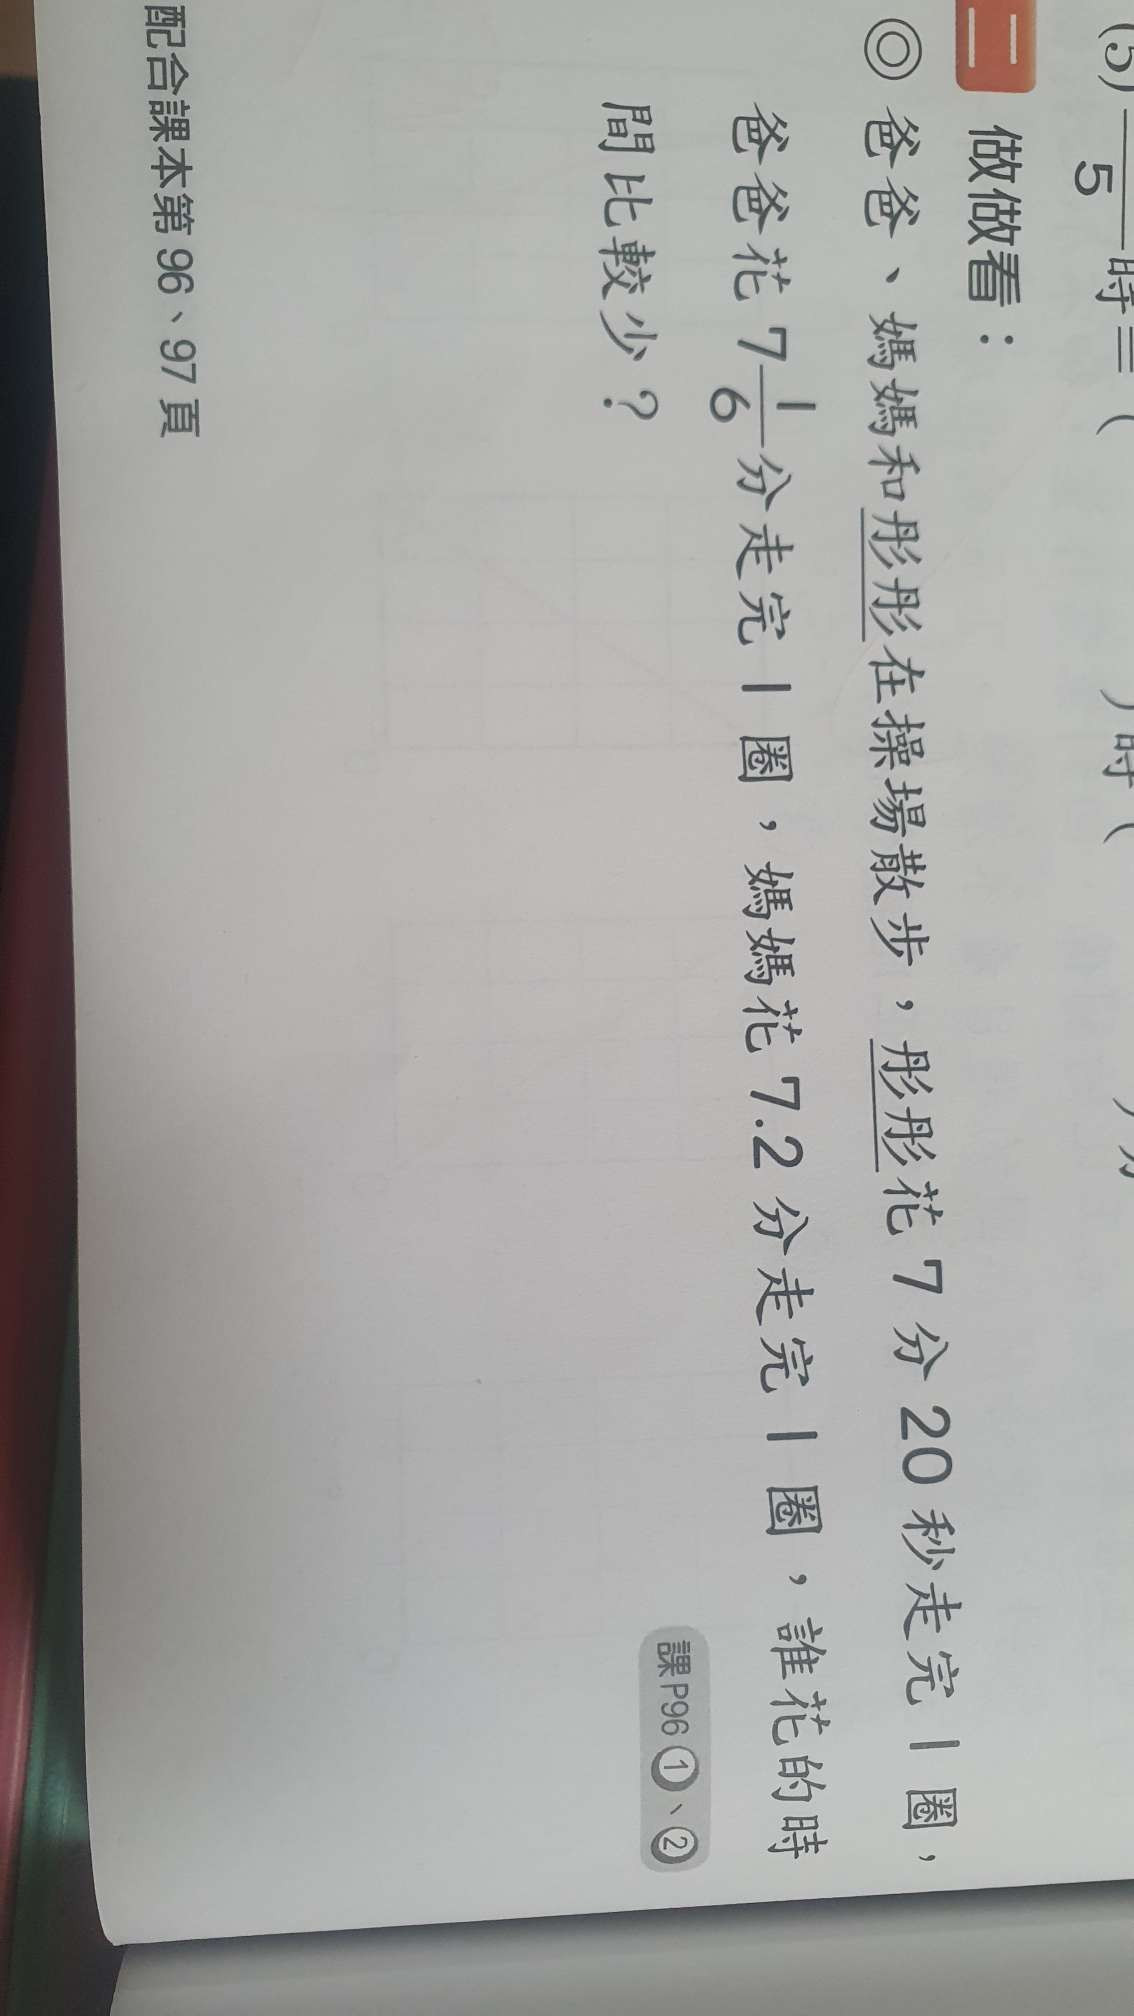 (5) —/5 時＝（　　）時（　　）分
二 做做看：
◎爸爸、媽媽和彤彤在操場散步，彤彤花 7 分 20 秒走完 1 圈，
爸爸花 7 1/6 分走完 1 圈，媽媽花 7.2 分走完 1 圈，誰花的時
間比較少？
課P96①、②
配合課本第 96、97 頁